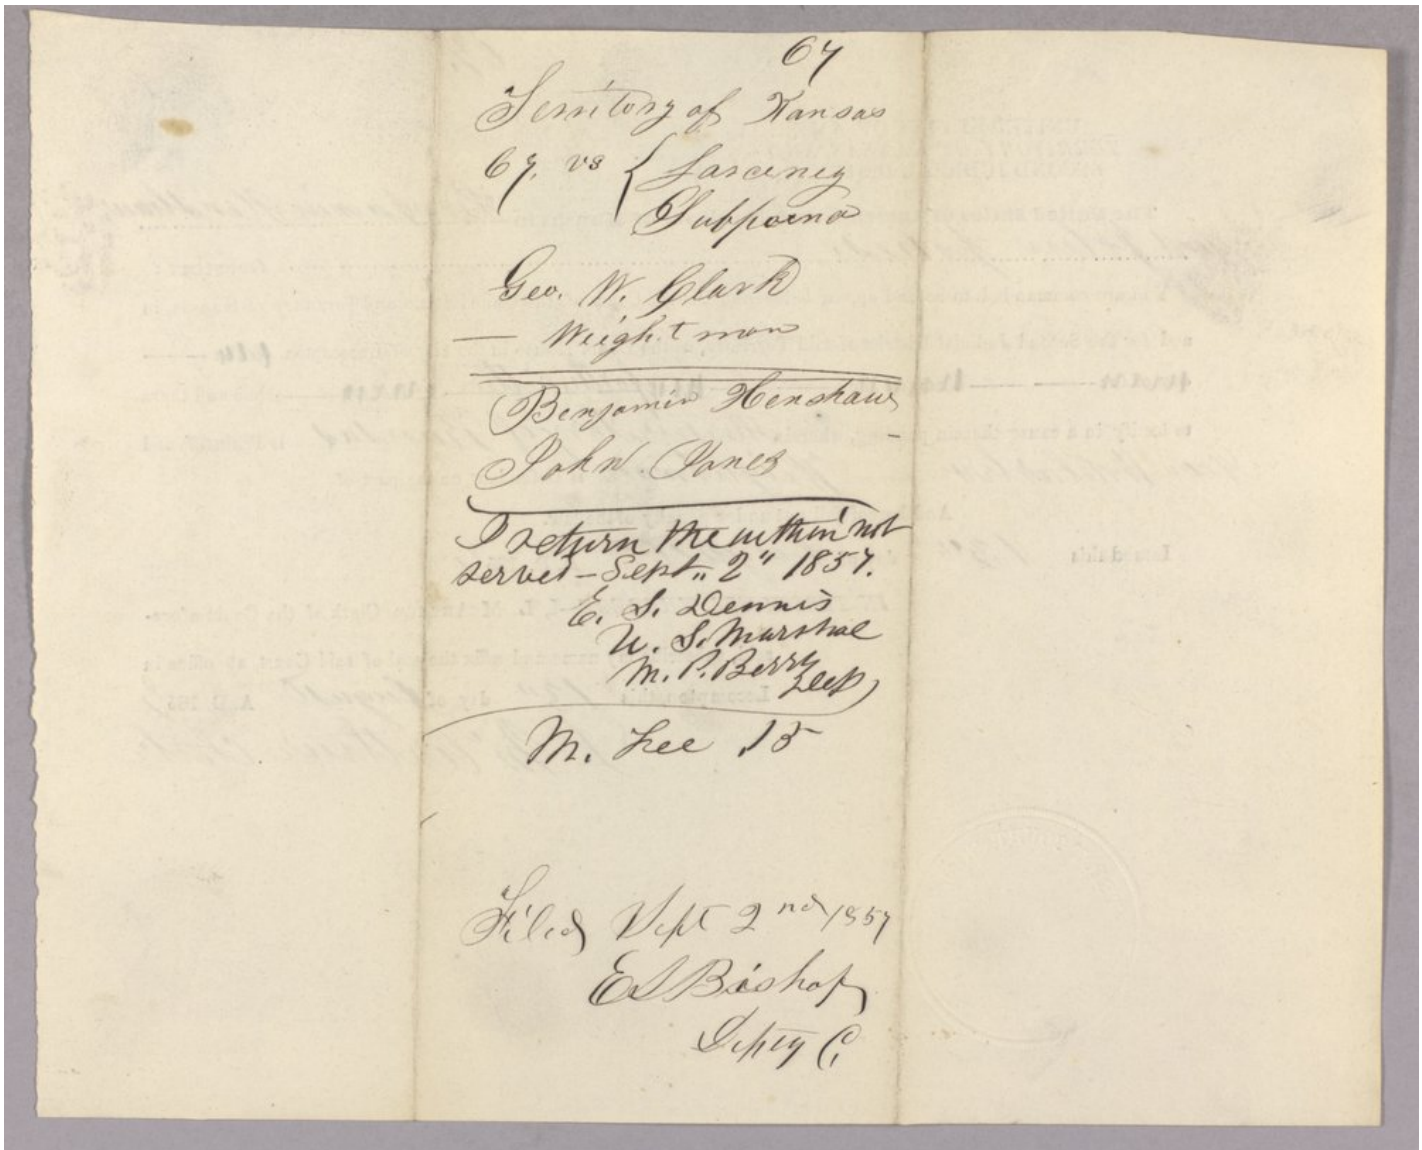 67
Territory of Kansas
67. vs { Larceney
Subpoena
Geo. W. Clark
— Weightman
Benjamin Henshaw
John Jones
I return the within not
served – Sept. 2" 1857.
E. S. Dennis
U. S. Marshal
M. P. Berry
Dep
M. Fee .15
Filed Sept 2nd 1857
E S Bishop
Depty C.